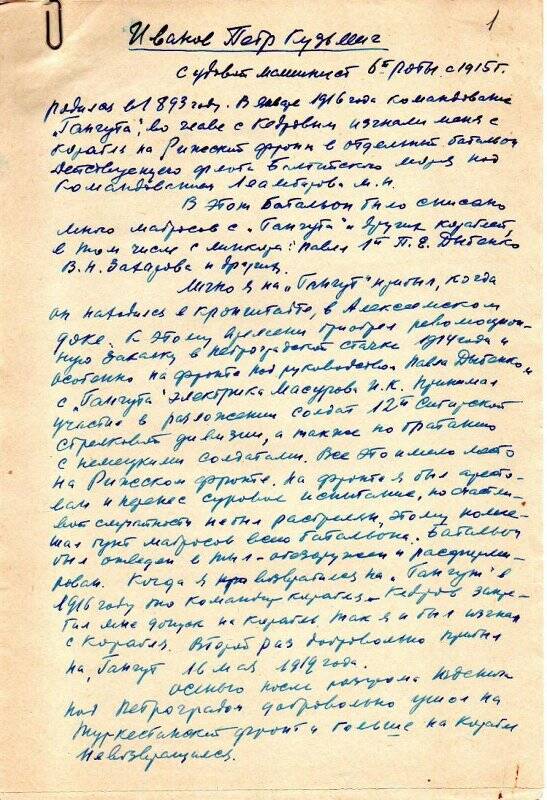 1
Иванов Петр Кузьмич
Судовой машинист 6й роты с 1915 г.
родился в 1893 году. В январе 1916 года командование
„Гангута" во главе с Кедровым изгнали меня с
корабля на Рижский фронт в отдельный батальон
действующего флота Балтийского моря под
командованием М.Н.
В этот батальон было списано
много матросов с „Гангута" и других кораблей,
в том числе с линкора: Павла 1го П.Е. Дыбенко
В.Н. Захарова и других.
Лично я на „Гангут" прибыл, когда
он находился в Кронштадте, в Алексеевском
доке. К этому времени приобрел революцион-
ную закалку в петроградской стачке 1914 года и
особенно на фронте под руководством Павла Дыбенко и
с „Гангута" электрика Мазурова И.К. Принимал
участие в разложении солдат 12й Сибирской
стрелковой дивизии, а также по братанию
с немецкими солдатами. Все это имело место
на Рижском фронте. На фронте я был аресто-
ван и перенес суровое испытание, но счастли-
вой случайности не был расстрелян, этому поме-
шал бунт матросов всего батальона. Батальон
был отведен в тыл - обезоружен и расформи-
рован. Когда я возвратился на „Гангут" в
1916 году командир корабля Кедров запре-
тил мне допуск на корабль так я и был изгнан
с корабля. Второй раз добровольно прибыл
на „Гангут 16 мая 1919 года.
Осенью после разгрома Юденича
под Петроградом добровольно ушел на
Туркестанский фронт и больше на корабль
не возвращался.